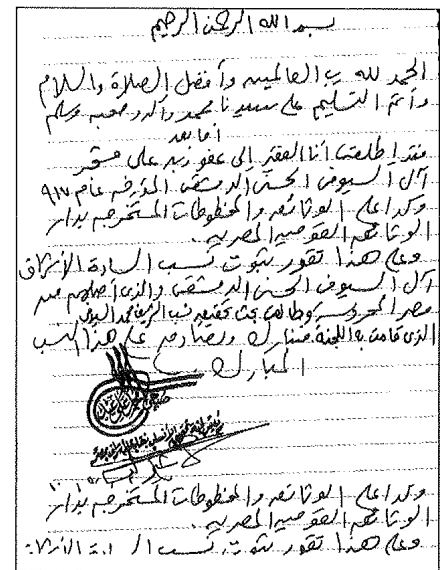 بسم الله الرحمن الرحيم
الحمد لله رب العالمين وأفضل الصلاة والسلام
وأتم التسليم على سيدنا محمد وآله وصحبه وسلم
أما بعد
فقد اطلعت أنا الفقير إلى عفو ربه على مشجر
آل السيوفي الحسني الدمشقي المؤرخه عام ٩١٧
وكذا على الوثائق والمخطوطات المستخرجه بدار
الوثائق القوميه المصريه.
وعلى هذا تقرر ثبوت نسب السادة الأشراف
آل السيوف الحسني الدمشقي والذي أصلهم من
مصر المحروسه وطالعت بحث تحقيق نسب الشريف محمد السيوفي
الذي قامت به اللجنة فنبارك ونصادق على هذا النسب
المبارك
وكذا على الوثائق والمخطوطات المستخرجه بدار
الوثائق القوميه المصريه.
وعلى هذا تقرر ثبوت نسب